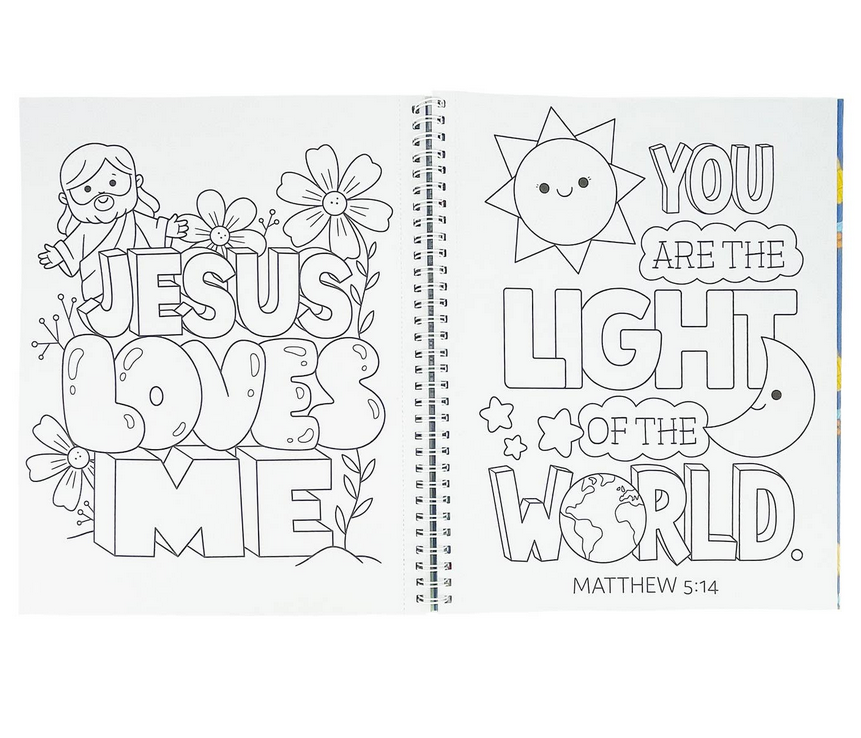 JESUS
LOVES
ME
YOU
ARE THE
LIGHT
OF THE
WORLD.
MATTHEW 5:14